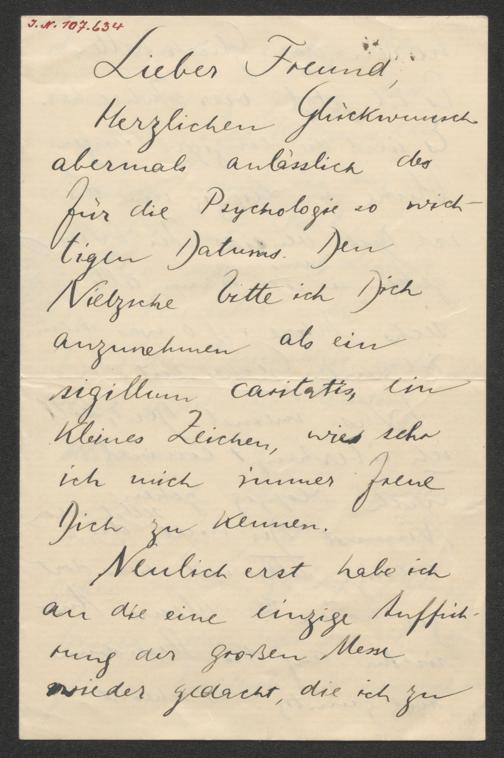 J. N. 107.634
Lieber Freund,
Herzlichen Glückwunsch
abermals anlässlich des
für die Psychologie so wich-
tigen Datums. Den
Nietzsche bitte ich Dich
anzunehmen als ein
sigillum caritatis, ein
kleines Zeichen, wie sehr
ich mich immer freue
Dich zu kennen.
Neulich erst habe ich
an die eine einzige Auffüh-
rung der großen Messe
wieder gedacht, die ich zu